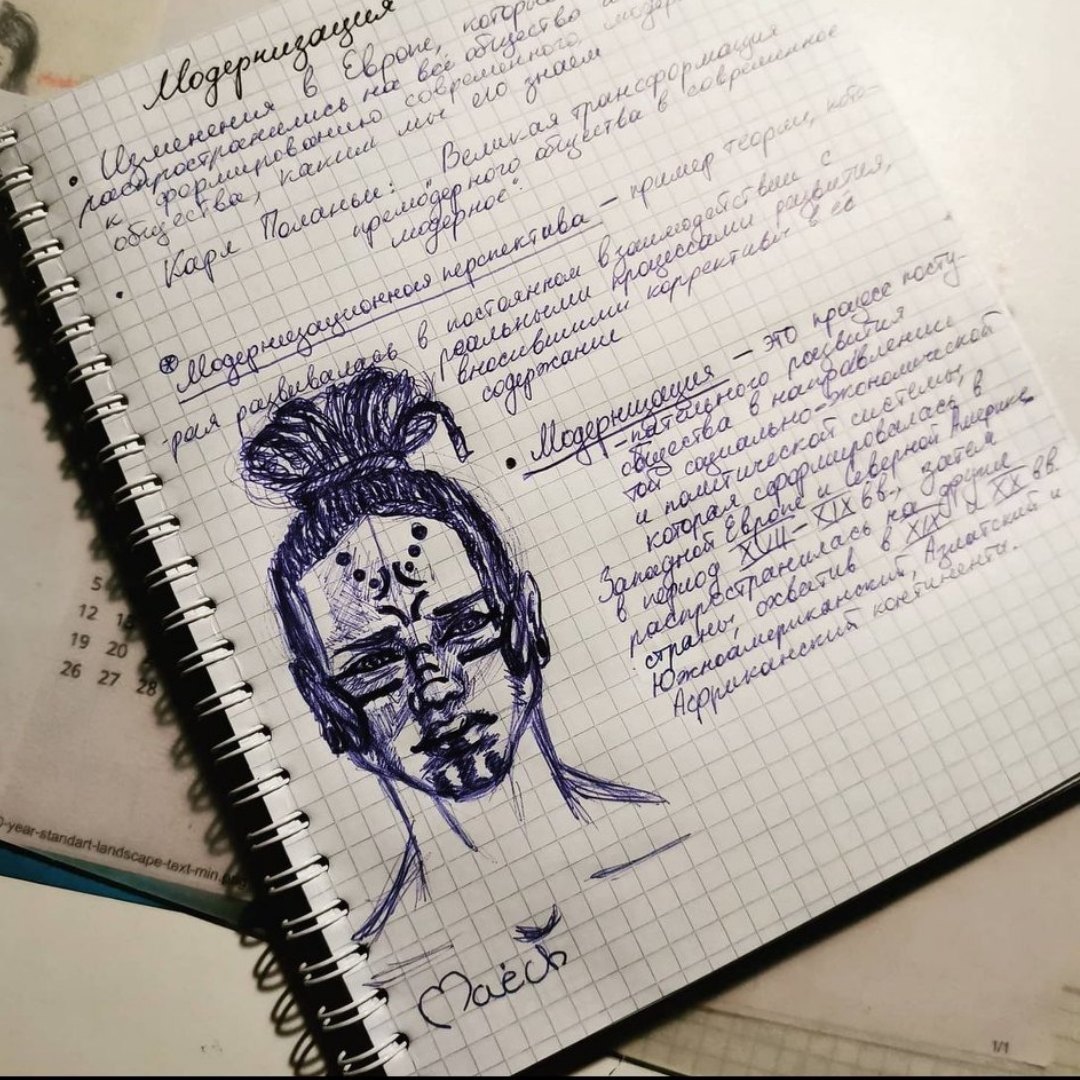 Модернизация
• Изменения в Европе, которые
распространились на всё общество и
к формированию современного модер
общества, каким мы его знаем
• Карл Поланьи: "Великая трансформация
премодерного общества в современное
модерное".
* Модернизационная перспектива – пример теории, кото-
-рая развивалась в постоянном взаимодействии с
реальными процессами развития,
вносившими коррективы в её
содержание
• Модернизация – это процесс посту-
-пательного развития
общества в направлении
той социально-экономической
и политической системы,
которая сформировалась в
Западной Европе и Северной Америке
в период XVII – XIX вв., затем
распространилась на другие
страны, охватив в XIX и XX вв.
Южноамериканский, Азиатский и
Африканский континенты.
5
12
19 20
26 27 28
0-year-standart-landscape-text-min.png
1/1